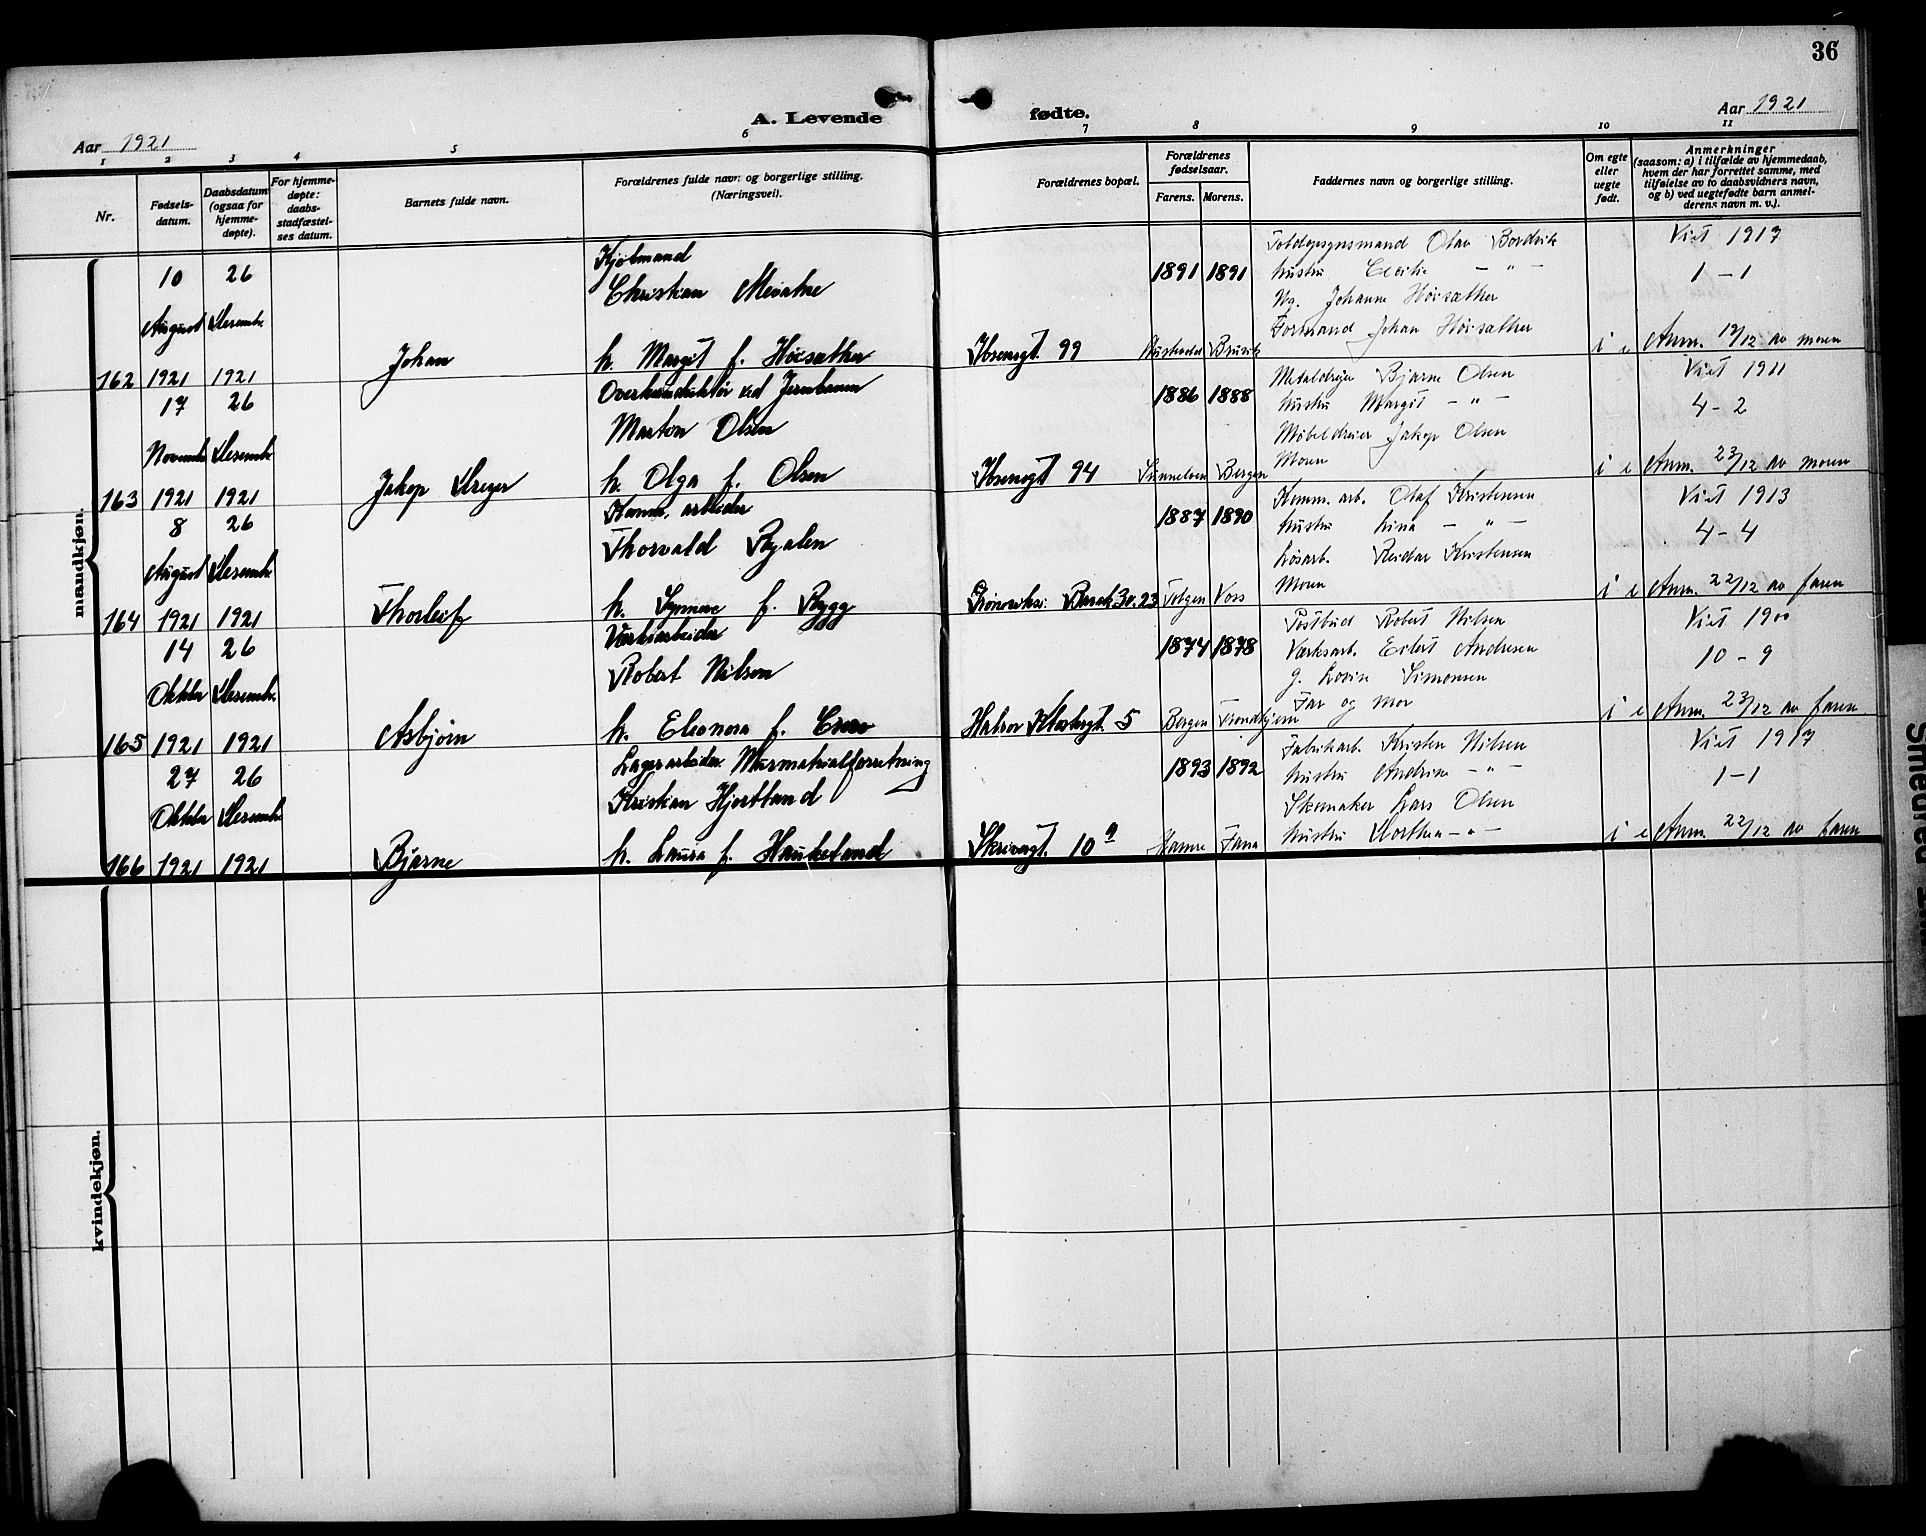 36
A. Levende fødte.
Aar 1921
Aar 1921
1 2 3 4 5 6 7 8 9 10 11
Nr.
Fødsels-
datum.
Daabsdatum
(ogsaa for
hjemme-
døpte).
For hjemme-
døpte:
daabs-
stadfæstel-
ses datum.
Barnets fulde navn.
Forældrenes fulde navn og borgerlige stilling.
(Næringsvei).
Forældrenes bopæl.
Forældrenes
fødselsaar.
Farens. Morens.
Faddernes navn og borgerlige stilling.
Om egte
eller
uegte
født.
Anmerkninger
(saasom: a) i tilfælde av hjemmedaab,
hvem der har forrettet samme, med
tilføielse av to daabsvidners navn,
og b) ved uegtefødte barn anmel-
derens navn m. v.).
mandkjøn.
162
10
August
1921
26
Desembr.
1921
Johan
Kjøbmand
Christian
h. Margit f. Høisæther
Ibsensgt. 99
1891 1891
Olav Bordvik
hustru Cecilie - " -
Johanne Høisæther
Formand Johan Høisæther
i e
Viet 1917
1 - 1
Anm. 19/12 av moren
163
17
Novembr
1921
26
Desembr
1921
Jakop Dreyer
Overkonduktør ved Jernbanen
Marton Olsen
h. Olga f. Olsen
Ibsensgt 94
1886 1888
Bergen
Metaldreier Bjarne Olsen
hustru Margit - " -
Møbeldreier Jakop Olsen
Moren
i e
Viet 1911
4 - 2
Anm. 23/12 av moren
164
8
August
1921
26
Desembr
1921
Thorleif
Komm. arbeider
Thorvald Ryalen
h. Synneve f. Rygg
Barak 30.23
1887 1890
Tolgen Voss
Komm. arb. Olaf Kristensen
hustru Lina - " -
Løsarb. Reidar Kristensen
Moren
i e
Viet 1913
4 - 4
Anm. 22/12 av faren
165
14
Oktober
1921
26
Desembr.
1921
Asbjørn
Verksarbeider
Robert Nilsen
h. Eleonora f.
Halvor 5
1874 1878
Bergen Trondhjem
Postbud Robert Nilsen
Værksarb. Eilert Andresen
g. Lovise Simonsen
Far og mor
i e
Viet 1900
10 - 9
Anm. 23/12 av faren
166
27
Oktober
1921
26
Desembr.
1921
Bjarne
Lagerarbeider Murmaterialforretning
Kristian Hjortland
h. Laura f. Haukeland
Skrivergt. 10 a
1893 1892
Hamre Fana
Fabrikarb. Kristen Nilsen
hustru Andrine - " -
Skomaker Lars Olsen
hustru Dorthea - " -
i e
Viet 1917
1 - 1
Anm. 22/12 av faren
kvindekjøn.